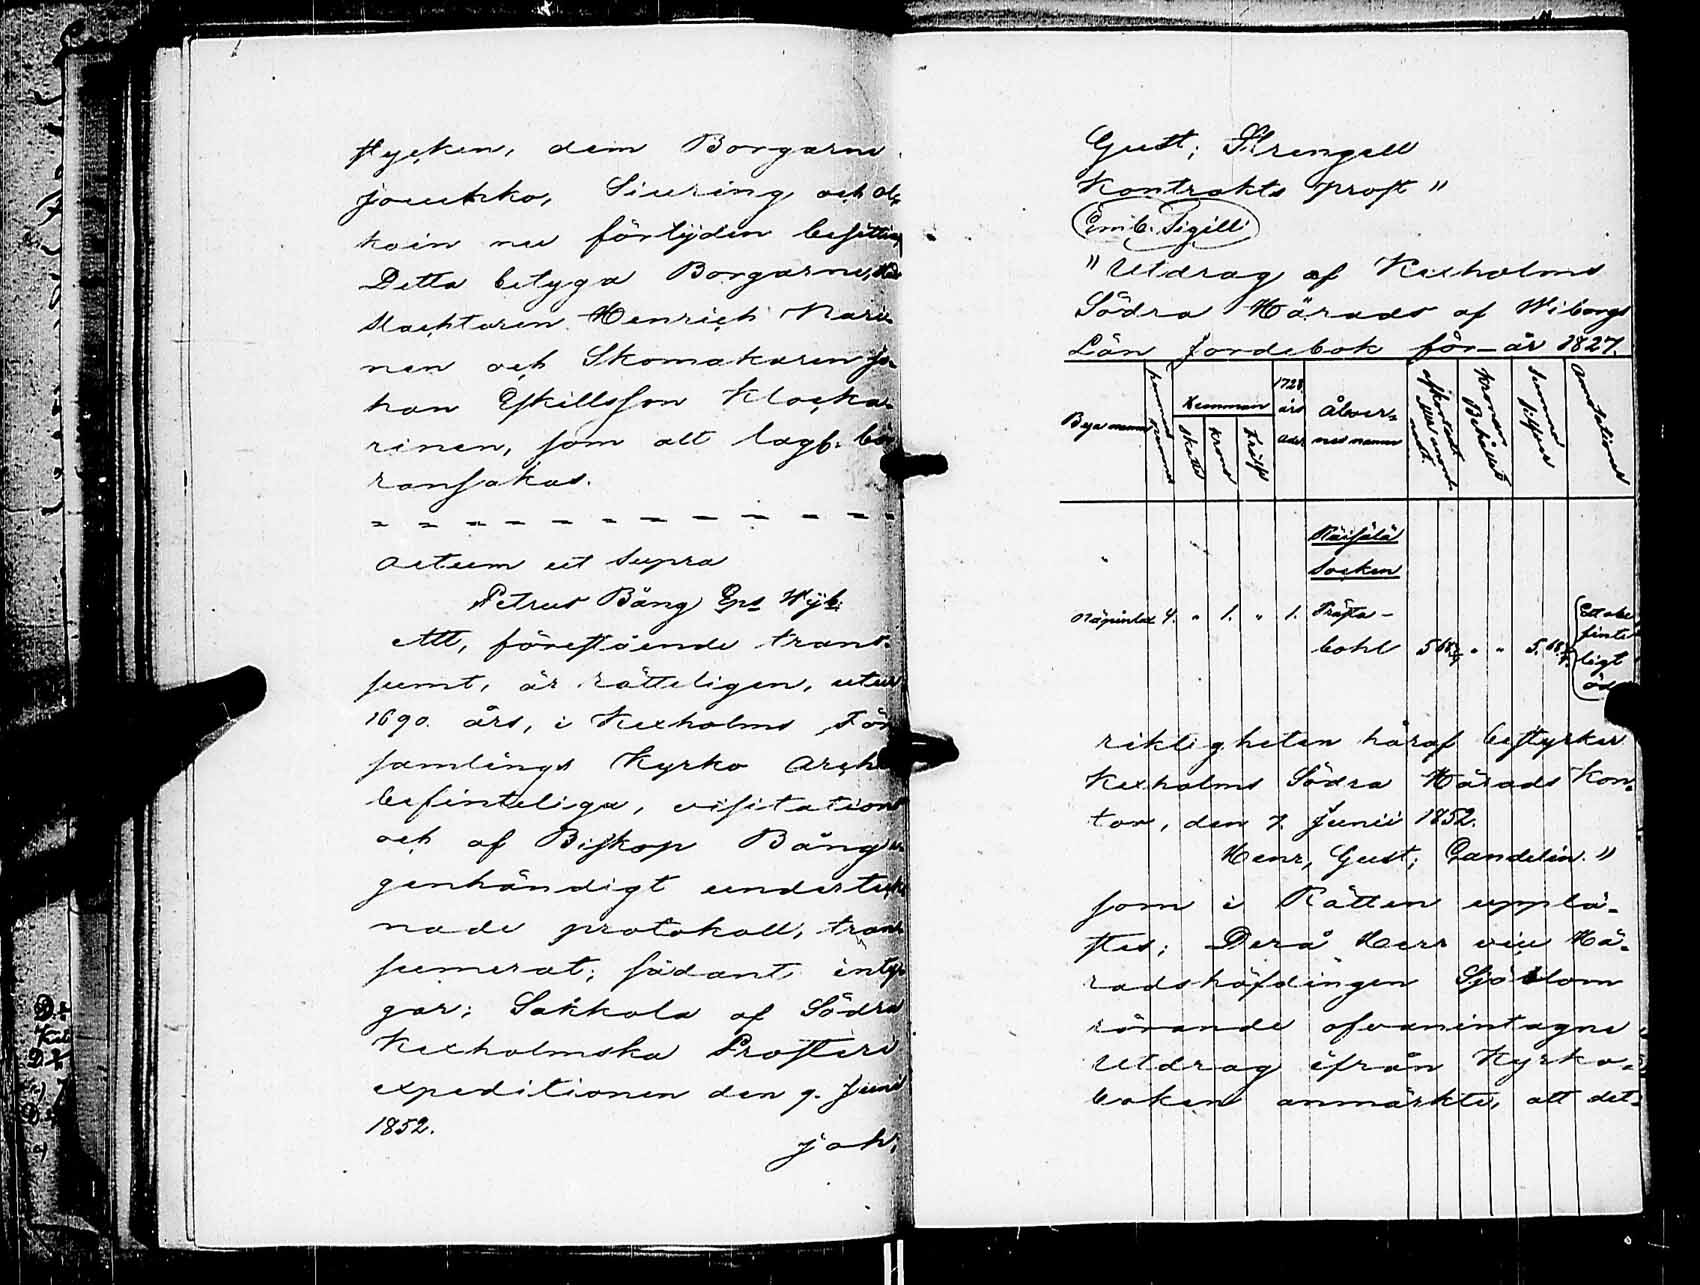 stycken, dem Borgarne
Jouckko, Siuring och Ol-
koin nu förtijden besittia,
Detta betyga Borgarne,
slachtaren Henrich Nari-
nen och Skomakaren Jo-
han Eskillsson Klocka-
rinen, som alt lagl. bör
ransakas.
= = = = = = = = = = = = = =
Actum ut Supra
Petrus Bång Eps Wijb:
Att, föreståendе trans-
sumt, är rätteligen, utur
1690. års, i Kexholms För
samlings Kyrko Archiv
befinteliga, visitations
och af Biskop Bång e
genhändigt underteck
nade protokoll, trans
sumerat; sådant inty-
gar; Sakkola af Södra
Kexholmska Prosteri
expeditionen den 9. Junii
1852.
Joh,
Gust; Strengell
Kontrakts prost "
Emb. Sigill
"Utdrag af Kexholms
Södra Härads af Wiborgs
Län Jordebok för år 1827.
Byanamn Hemman Skatte Krono Frälse 1728 års Åboernes namn Kronans Behållet Summa Silfver Annotationer
Räisälä
Socken
4. " 1. " 1. Trästa-
bohl 5 " " 5.
Ett obe
finte
ligt
öde
riktigheten häraf bestyrker
Kexholms Södra Härads Kon-
tor, den 7. Junii 1852.
Henr, Gust; Gandelin."
som i Rätten upplä-
stes; Derå Herr vice Hä-
radshöfdingen Sjöblom
rörande ofvanintagne
Utdrag ifrån Kyrko-
boken anmärkte, att det-